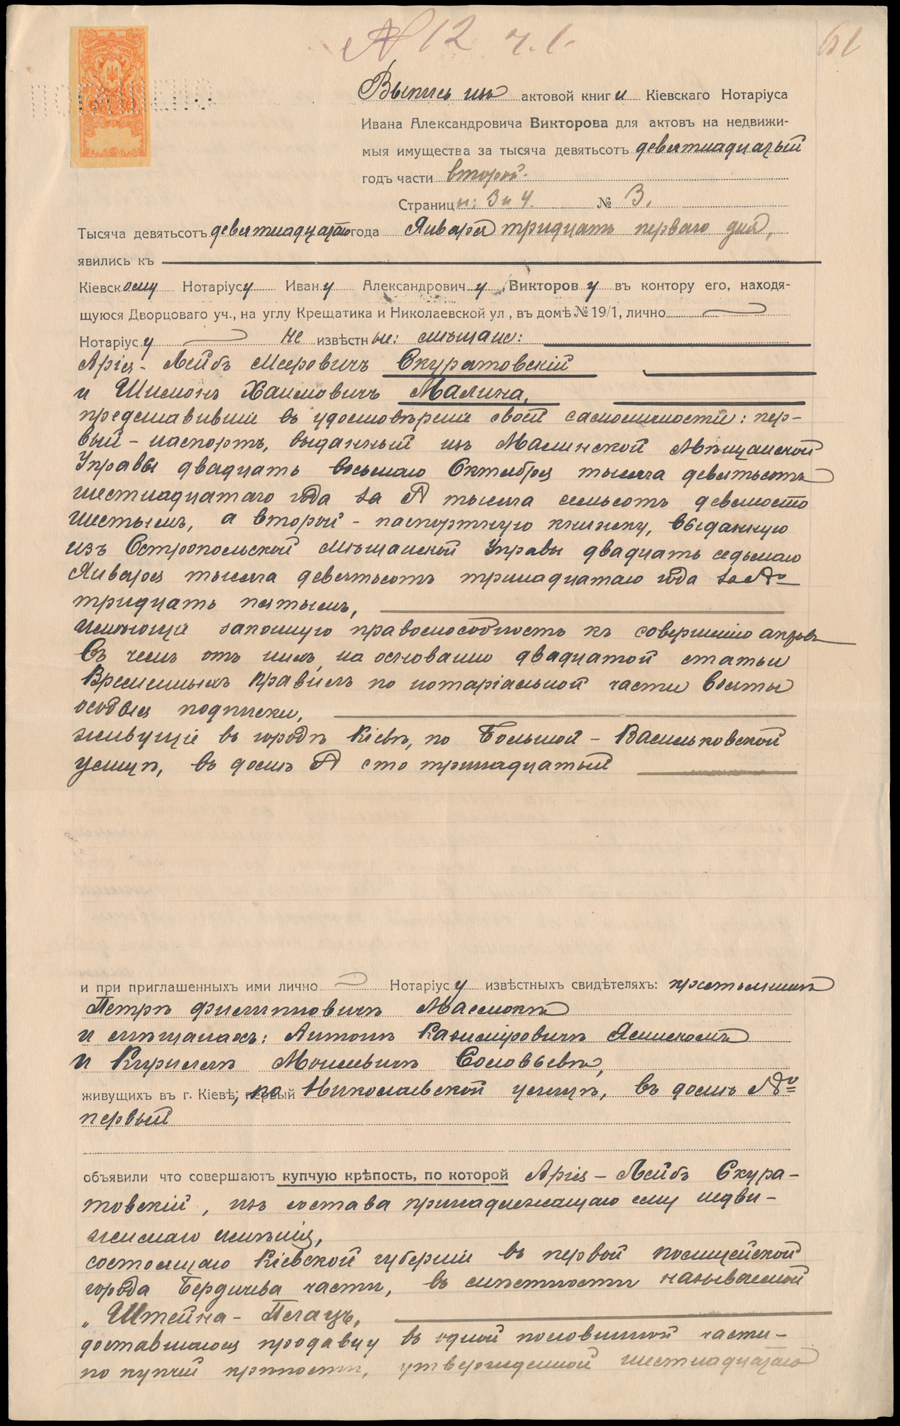 № 12 ч. 1.
61
Выпись изъ актовой книги Кіевскаго Нотаріуса
Ивана Александровича Викторова для актовъ на недвижи-
мыя имущества за тысяча девятьсотъ девятнадцатый
годъ части второй.
Страницы: 3 и 4. № 3.
Тысяча девятьсотъ девятнадцатаго года Января тридцать перваго дня,
явились къ
Кіевскому Нотаріусу Ивану Александровичу Викторову въ контору его, находя-
щуюся Дворцоваго уч., на углу Крещатика и Николаевской ул., въ домѣ № 19/1, лично
Нотаріусу не извѣстные: мѣщане:
Арія-Лейбъ Меровичъ Скуратовскій
и Шимонъ Хаимовичъ Малина,
представившіе въ удостовѣреніе своей самоличности: пер-
вый - паспортъ, выданный изъ Малинской Мѣщанской
Управы двадцать восьмаго Октября тысяча девятьсотъ
шестнадцатаго года за № тысяча семьсотъ девяносто
шестымъ, а второй - паспортную книжку, выданную
изъ Остропольской мѣщанской Управы двадцать седьмаго
Января тысяча девятьсотъ тринадцатаго года за №
тридцать пятымъ,
имѣющіе законную правоспособность къ совершенію актовъ
въ чемъ отъ нихъ, на основаніи двадцатой статьи
Временныхъ Правилъ по нотаріальной части взяты
особыя подписки,
живущіе въ городѣ Кіевѣ, по Большой-Васильковской
улицѣ, въ домѣ № сто тринадцатый
и при приглашенныхъ ими лично Нотаріусу извѣстныхъ свидѣтеляхъ: крестьянинѣ
Петрѣ Филипповичѣ
и мѣщанахъ: Антонѣ Казиміровичѣ
и Кириллѣ Моисеевичѣ Соловьевѣ,
живущихъ въ г. Кіевѣ, по Николаевской улицѣ, въ домѣ №
первый
объявили что совершаютъ купчую крѣпость, по которой Арія-Лейбъ Скура-
товскій, изъ состава принадлежащаго ему недви-
жимаго имѣнія,
состоящаго Кіевской губерніи въ первой полицейской
города Бердичева части, въ мѣстности называемой
„Штейна-Плацъ,
доставшагося продавцу въ одной половинной части-
по купчей крѣпости, утвержденной шестнадцатаго